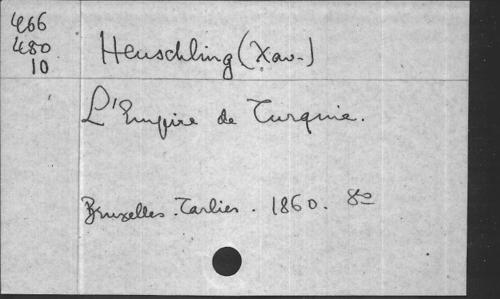 466
480
10
Heuschling (Xav.)
L'Empire de Turquie.
Bruxelles. Tarlier. 1860. 8o